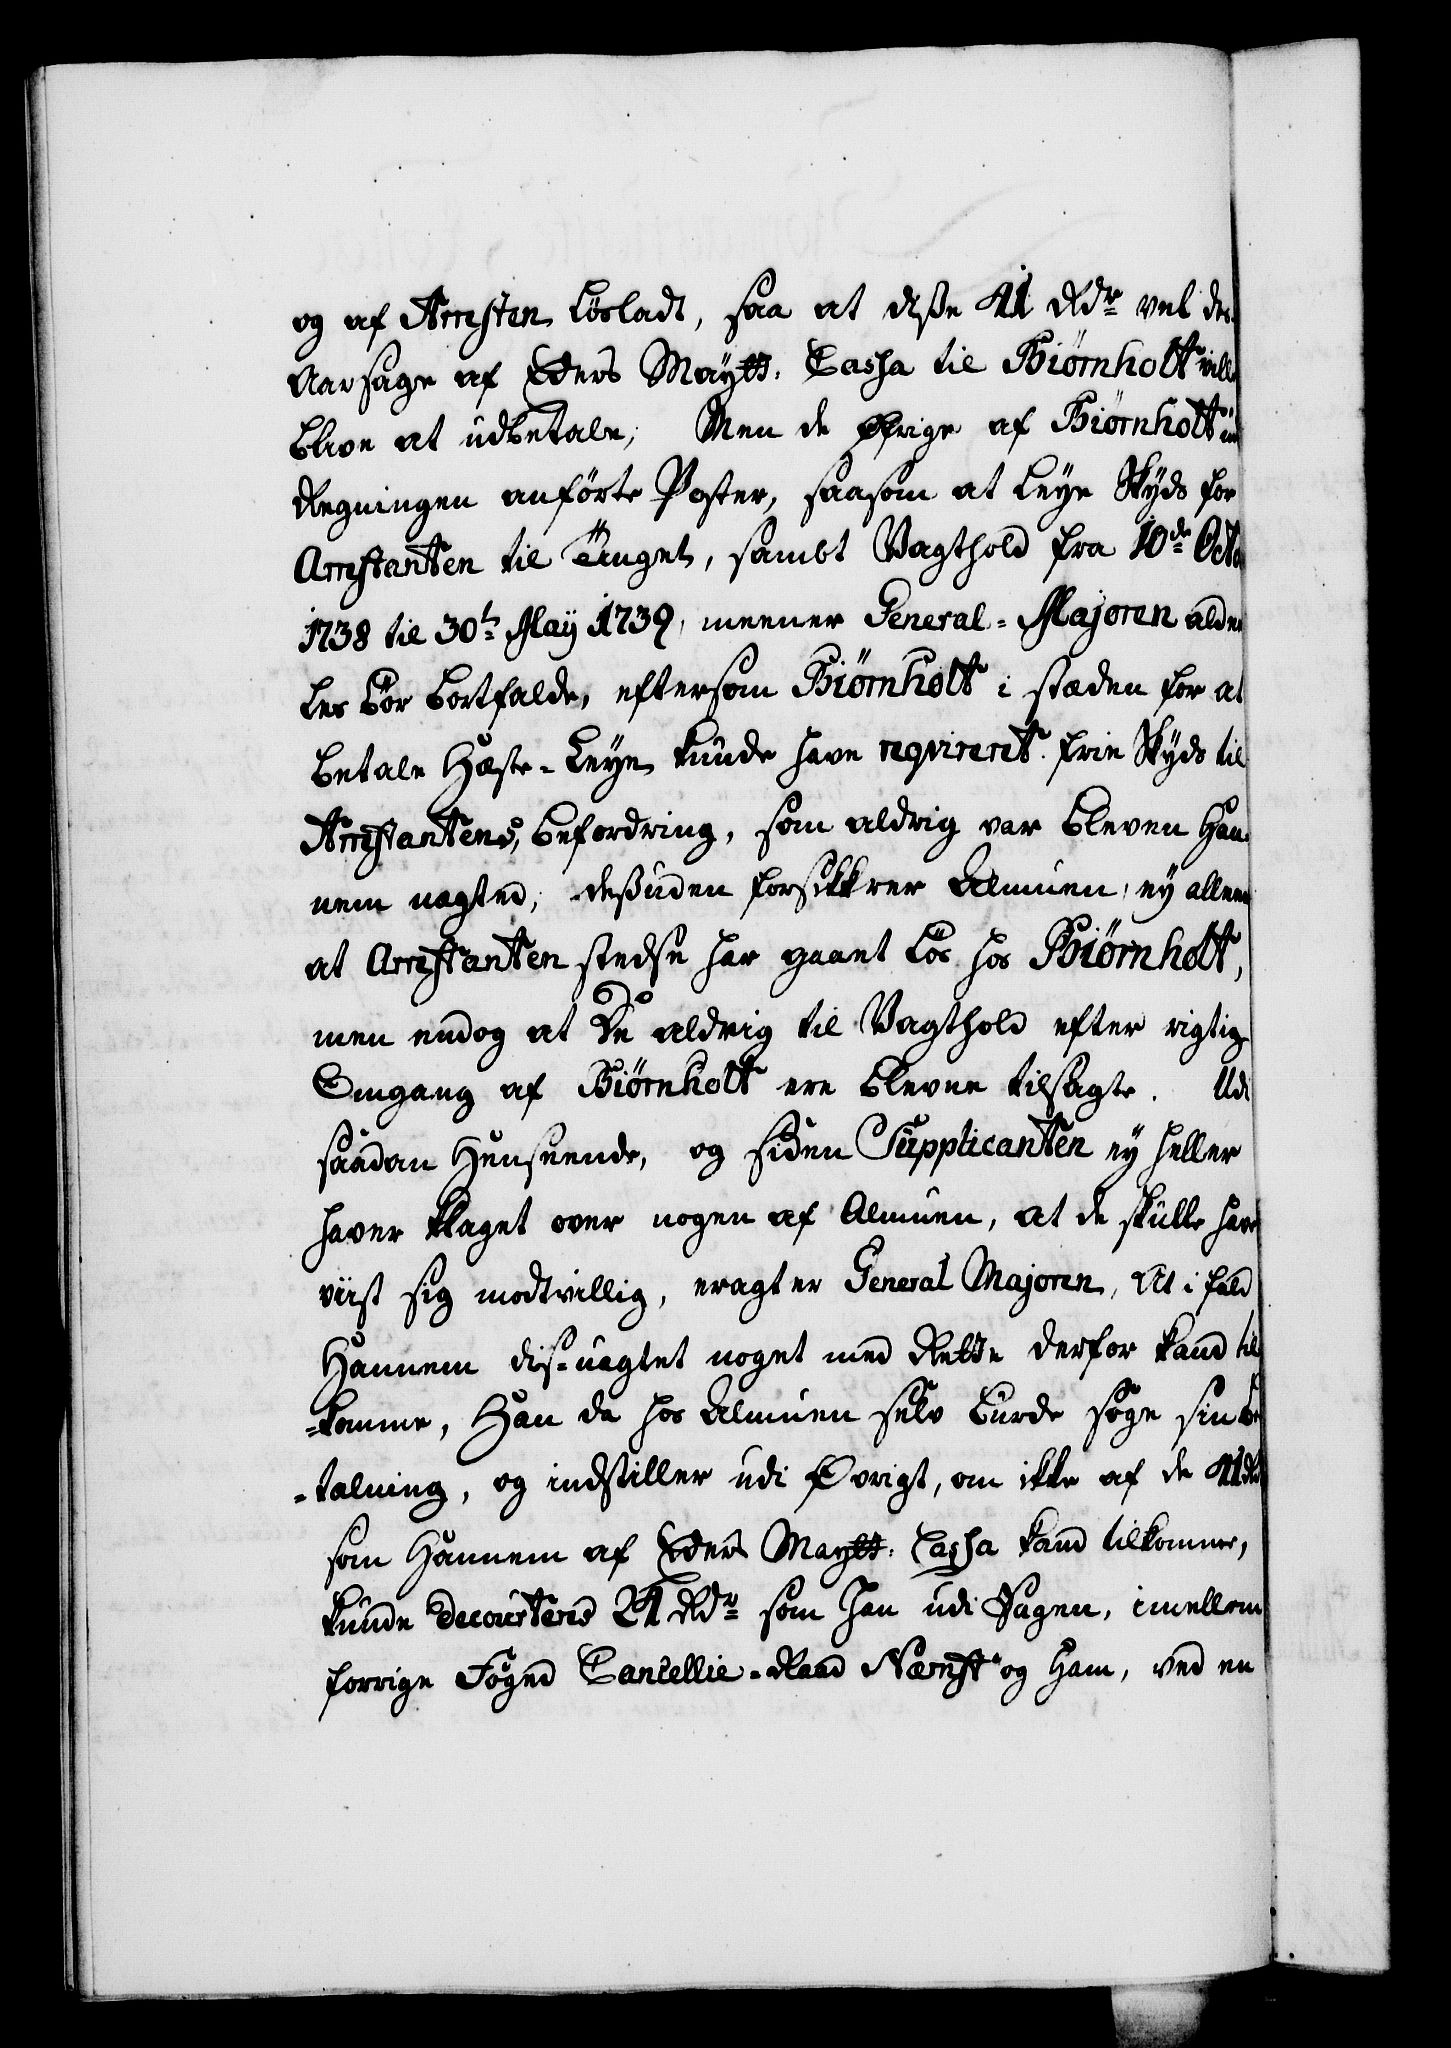 og af Arresten lösladt, saa at diße 41 Rdr vel des
Aarsage af Eders Maytt. Cassa til Biørnholt ville
blive at udbetale; Men de øfrige af Biørnholt i
Regningen anförte Poster, saasom at leye Skyds for
Arrestanten til Tinget, sambt Vagthold fra 10de Octo
1738 til 30te May 1739, meener General-Majoren aldee
les bör bortfalde, eftersom Biørnholt i stæden for at
betale Hæste-Leye, kunde have reqvireret frie Skyds til
Arrestantens befordring, som aldrig var bleven Han
nem negted, desuden forsikkrer Almuen, ey alleene
at Arrestanten stedse har gaaet lös hos Biørnholt,
men endog at De aldrig til Vagthold efter rigtig
Omgang af Biørnholt ere blevne tilsagte. Udi
saadan Henseende, og siden Supplicanten ey heller
haver klaget over nogen af Almuen, at de skulle have
viist sig modtvillig, eragter General Majoren, At i fald
Hannem dis-uagtet noget med Rette derfor kand til
-komme, Han da hos Almuen selv burde söge sin be
-talning, og indstiller udi Øvrigt, om ikke af de 41 Rdr
som Hannem af Eders Maytt. Cassa kand tilkomme,
kunde decourteres 21 Rdr som han udi Sagen, imellem
forrige Foged Cancellie-Raad Nærst og Ham, ved en